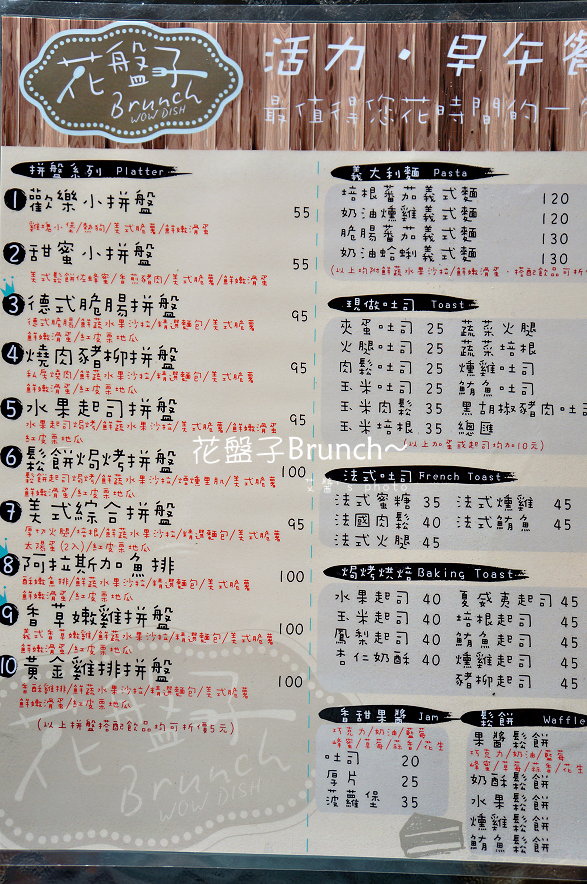 花盤子
Brunch
WOW DISH
活力・早午餐
最值得您花時間的一
拼盤系列 Platter
1 歡樂小拼盤 55
雞塊小堡/熱狗/美式脆薯/鮮嫩滑蛋
2 甜蜜小拼盤 55
美式鬆餅佐蜂蜜/香煎豬肉/美式脆薯/鮮嫩滑蛋
3 德式脆腸拼盤 95
德式脆腸/鮮蔬水果沙拉/精選麵包/美式脆薯
鮮嫩滑蛋/紅皮栗地瓜
4 燒肉豬柳拼盤 95
私房燒肉/鮮蔬水果沙拉/精選麵包/美式脆薯
鮮嫩滑蛋/紅皮栗地瓜
5 水果起司拼盤 95
水果起司焗烤/鮮蔬水果沙拉/精選麵包/美式脆薯
紅皮栗地瓜
6 鬆餅焗烤拼盤 100
鬆餅起司焗烤/鮮蔬水果沙拉/煙燻里肌/美式脆薯
鮮嫩滑蛋/紅皮栗地瓜
7 美式綜合拼盤 95
厚切火腿/培根/鮮蔬水果沙拉/精選麵包/美式脆薯
太陽蛋(2入)/紅皮栗地瓜
8 阿拉斯加魚排 100
酥嫩魚排/鮮蔬水果沙拉/精選麵包/美式脆薯
鮮嫩滑蛋/紅皮栗地瓜
9 香草嫩雞拼盤 100
義式香草嫩雞/鮮蔬水果沙拉/精選麵包/美式脆薯
鮮嫩滑蛋/紅皮栗地瓜
10 黃金雞排拼盤 100
香酥雞排/鮮蔬水果沙拉/精選麵包/美式脆薯
鮮嫩滑蛋/紅皮栗地瓜
(以上拼盤搭配飲品均可折價5元)
花盤子
Brunch
WOW DISH
義大利麵 Pasta
培根蕃茄義式麵 120
奶油燻雞義式麵 120
脆腸蕃茄義式麵 130
奶油蛤蜊義式麵 130
(以上均附鮮蔬水果沙拉/鮮嫩滑蛋・搭配飲品可折價
現做吐司 Toast
夾蛋吐司 25 蔬菜火腿
火腿吐司 25 蔬菜培根
肉鬆吐司 25 燻雞吐司
玉米吐司 25 鮪魚吐司
玉米肉鬆 35 黑胡椒豬肉吐司
玉米培根 35 總匯
(以上加蛋或起司均加10元)
花盤子Brunch~
法式吐司 French Toast
法式蜜糖 35 法式燻雞 45
法國肉鬆 40 法式鮪魚 45
法式火腿 45
焗烤烘焙 Baking Toast
水果起司 40 夏威夷起司 45
玉米起司 40 培根起司 45
鳳梨起司 40 鮪魚起司 45
杏仁奶酥 40 燻雞起司 45
豬柳起司 45
香甜果醬 Jam
巧克力/奶油/藍莓
蜂蜜/草莓/蒜香/花生
吐司 20
厚片 25
菠蘿堡 35
鬆餅 Waffle
果醬鬆餅
巧克力/奶油/藍莓
蜂蜜/草莓/蒜香/花
奶酥鬆餅
水果鬆餅
燻雞鬆餅
鮪魚鬆餅